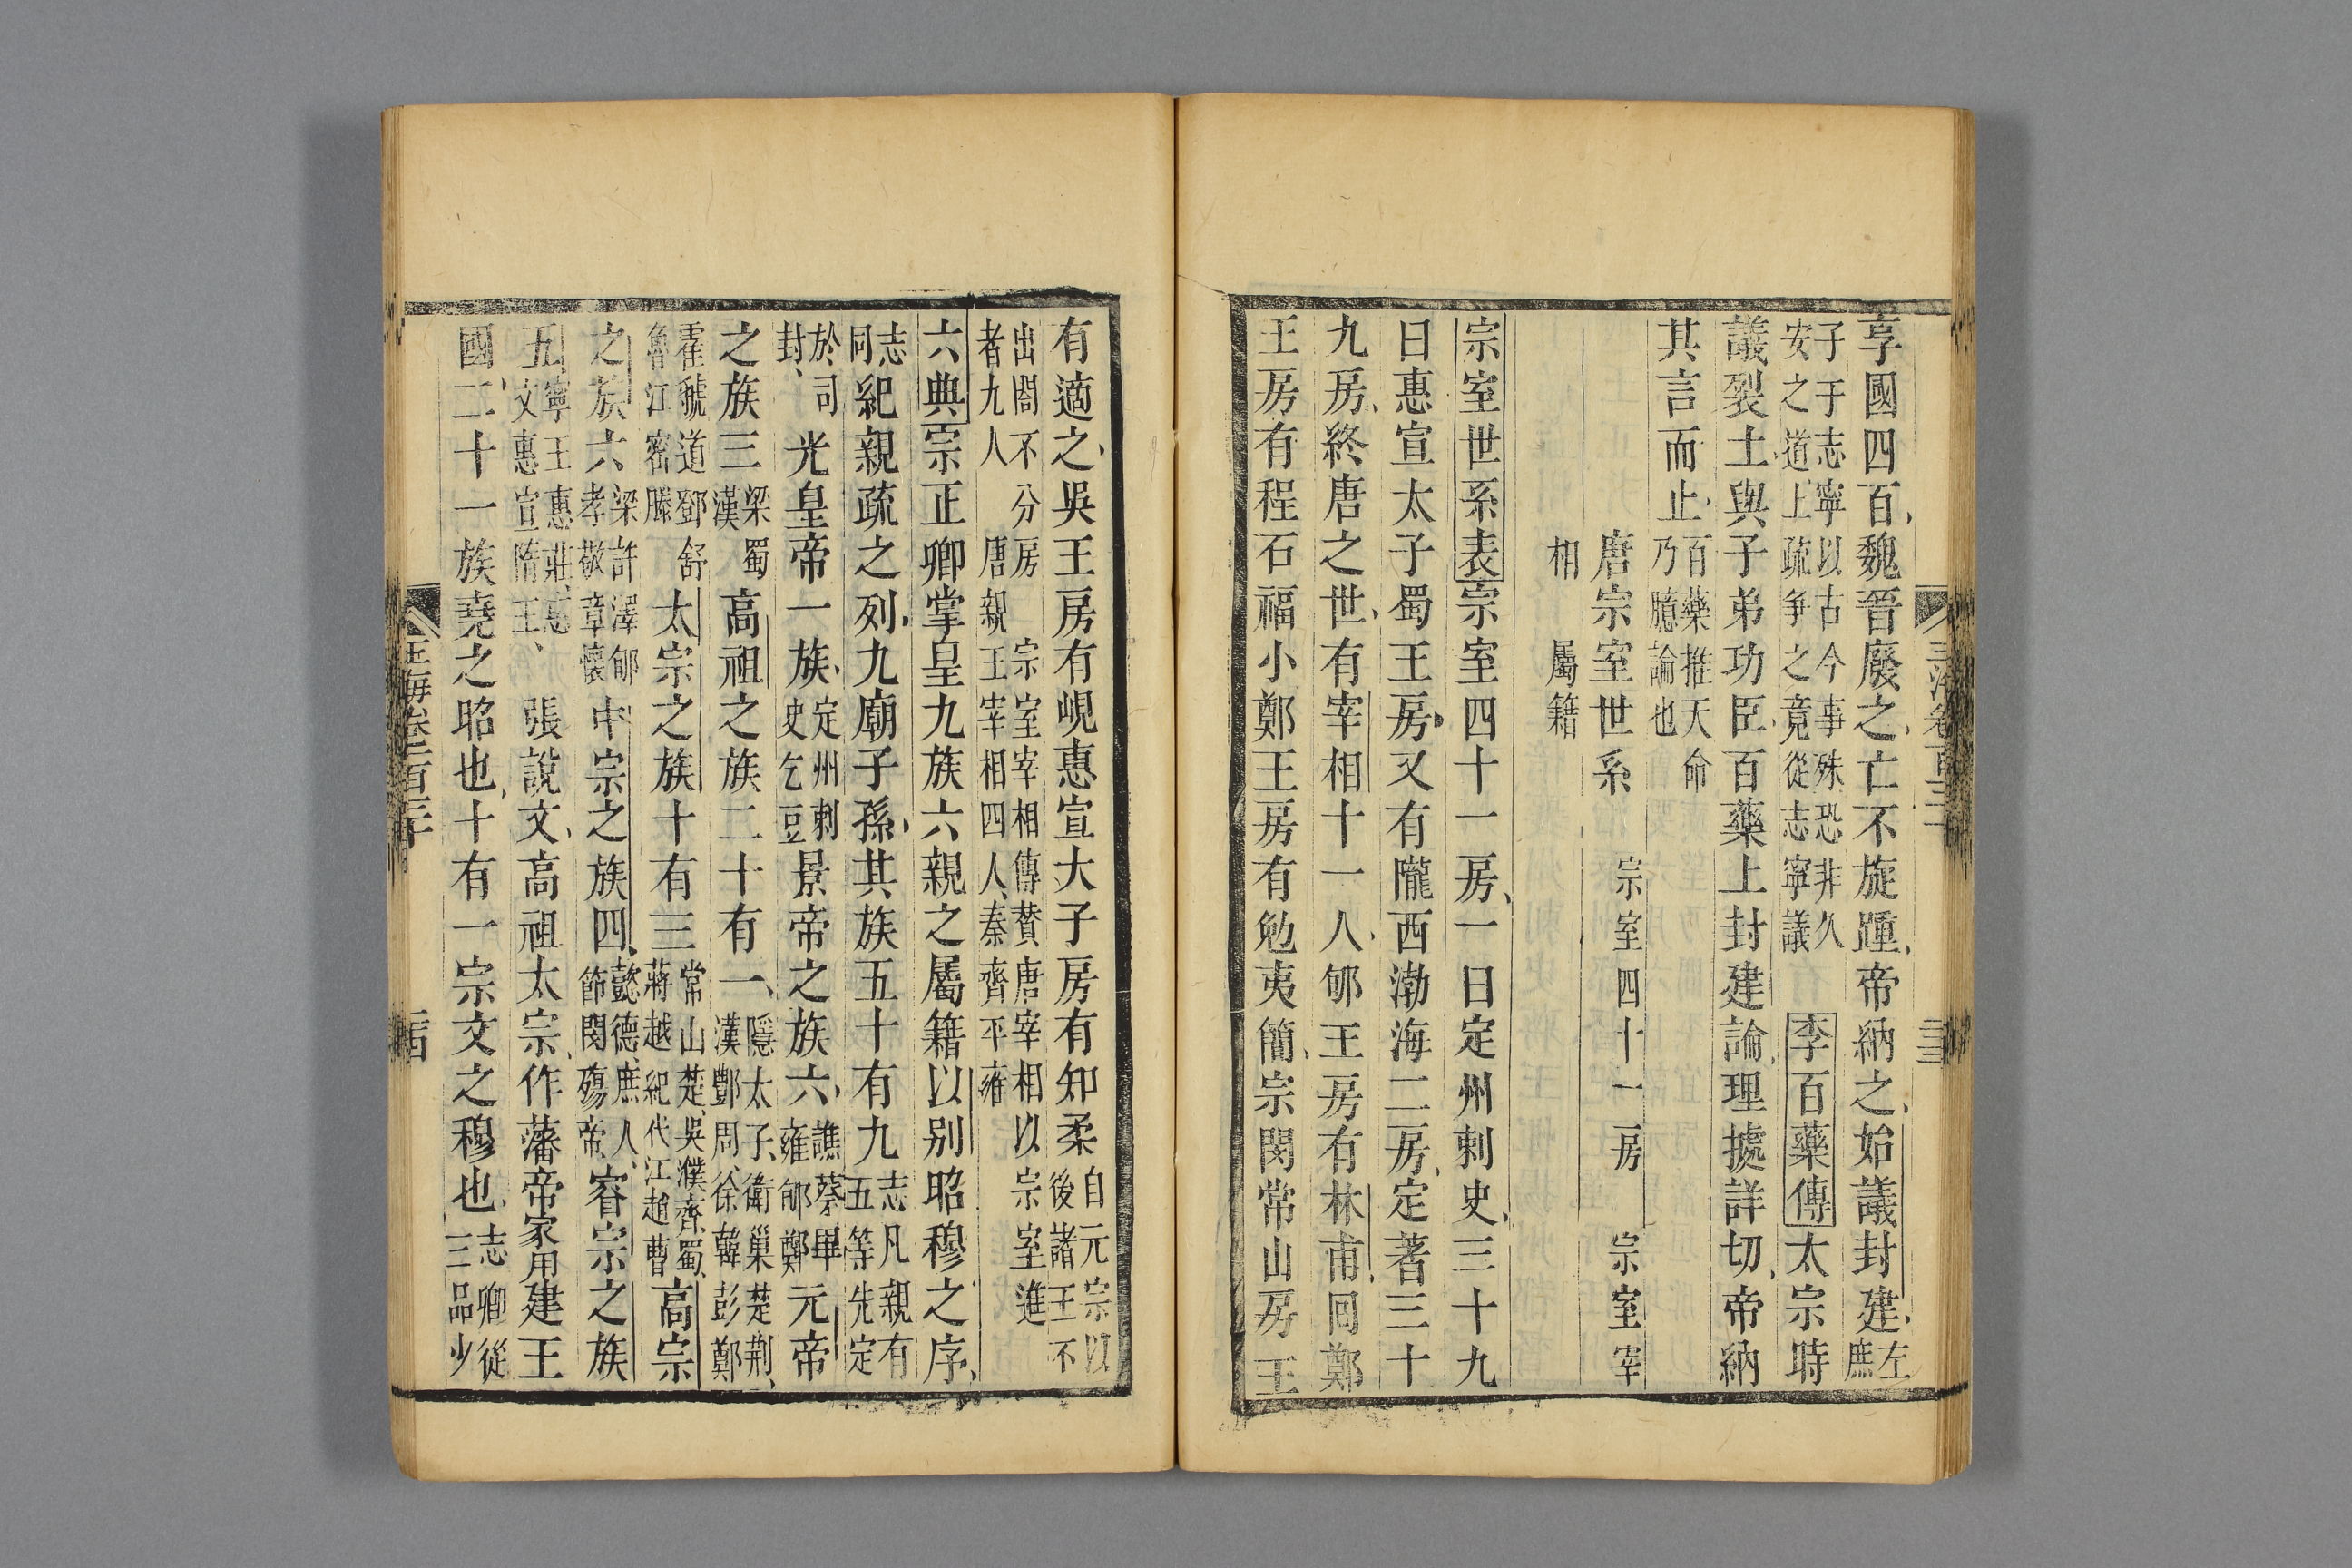 享國四百魏晉廢之亡不旋踵帝納之始議封建左庶
子于志寧以古今事殊恐非久安之道上疏爭之竟從志寧議 李百藥傳太宗時
議裂土與子弟功臣百藥上封建論理據詳切帝納
其言而止百藥推天命乃臆論也
唐宗室世系 宗室四十一房 宗室宰
相 屬籍
宗室世系表宗室四十一房一曰定州刺史三十九
曰惠宣太子蜀王房又有隴西渤海二房定著三十
九房終唐之世有宰相十一人郇王房有林甫囘鄭
王房有程石福小鄭王房有勉夷簡宗閔常山房
有適之吳王房有峴惠宣大子房有知柔自元宗以後諸王不
出閤不分房 宗室宰相傳贊唐宰相以宗室進者九人唐親王宰相四人秦齊平雍
六典宗正卿掌皇九族六親之屬籍以别昭穆之序
志同紀親疏之列九廟子孫其族五十有九志凡親有五等先定
於司封光皇帝一族定州刺史乞豆景帝之族六譙蔡畢雍郇鄭元帝
之族三梁蜀漢高祖之族二十有一隱太子衛巢楚荆漢酆周徐韓彭鄭
霍虢道鄧舒魯江密滕太宗之族十有三常山楚吳濮齊蜀蔣越紀代江趙曹高宗
之族六梁許澤郇孝敬章懷中宗之族四懿德庶人節閔殤帝睿宗之族
五寧王惠莊惠文惠宣隋王張說文高祖太宗作藩帝家用建王
國二十一族堯之昭也十有一宗文之穆也志卿從三品少
玉海卷一百三十